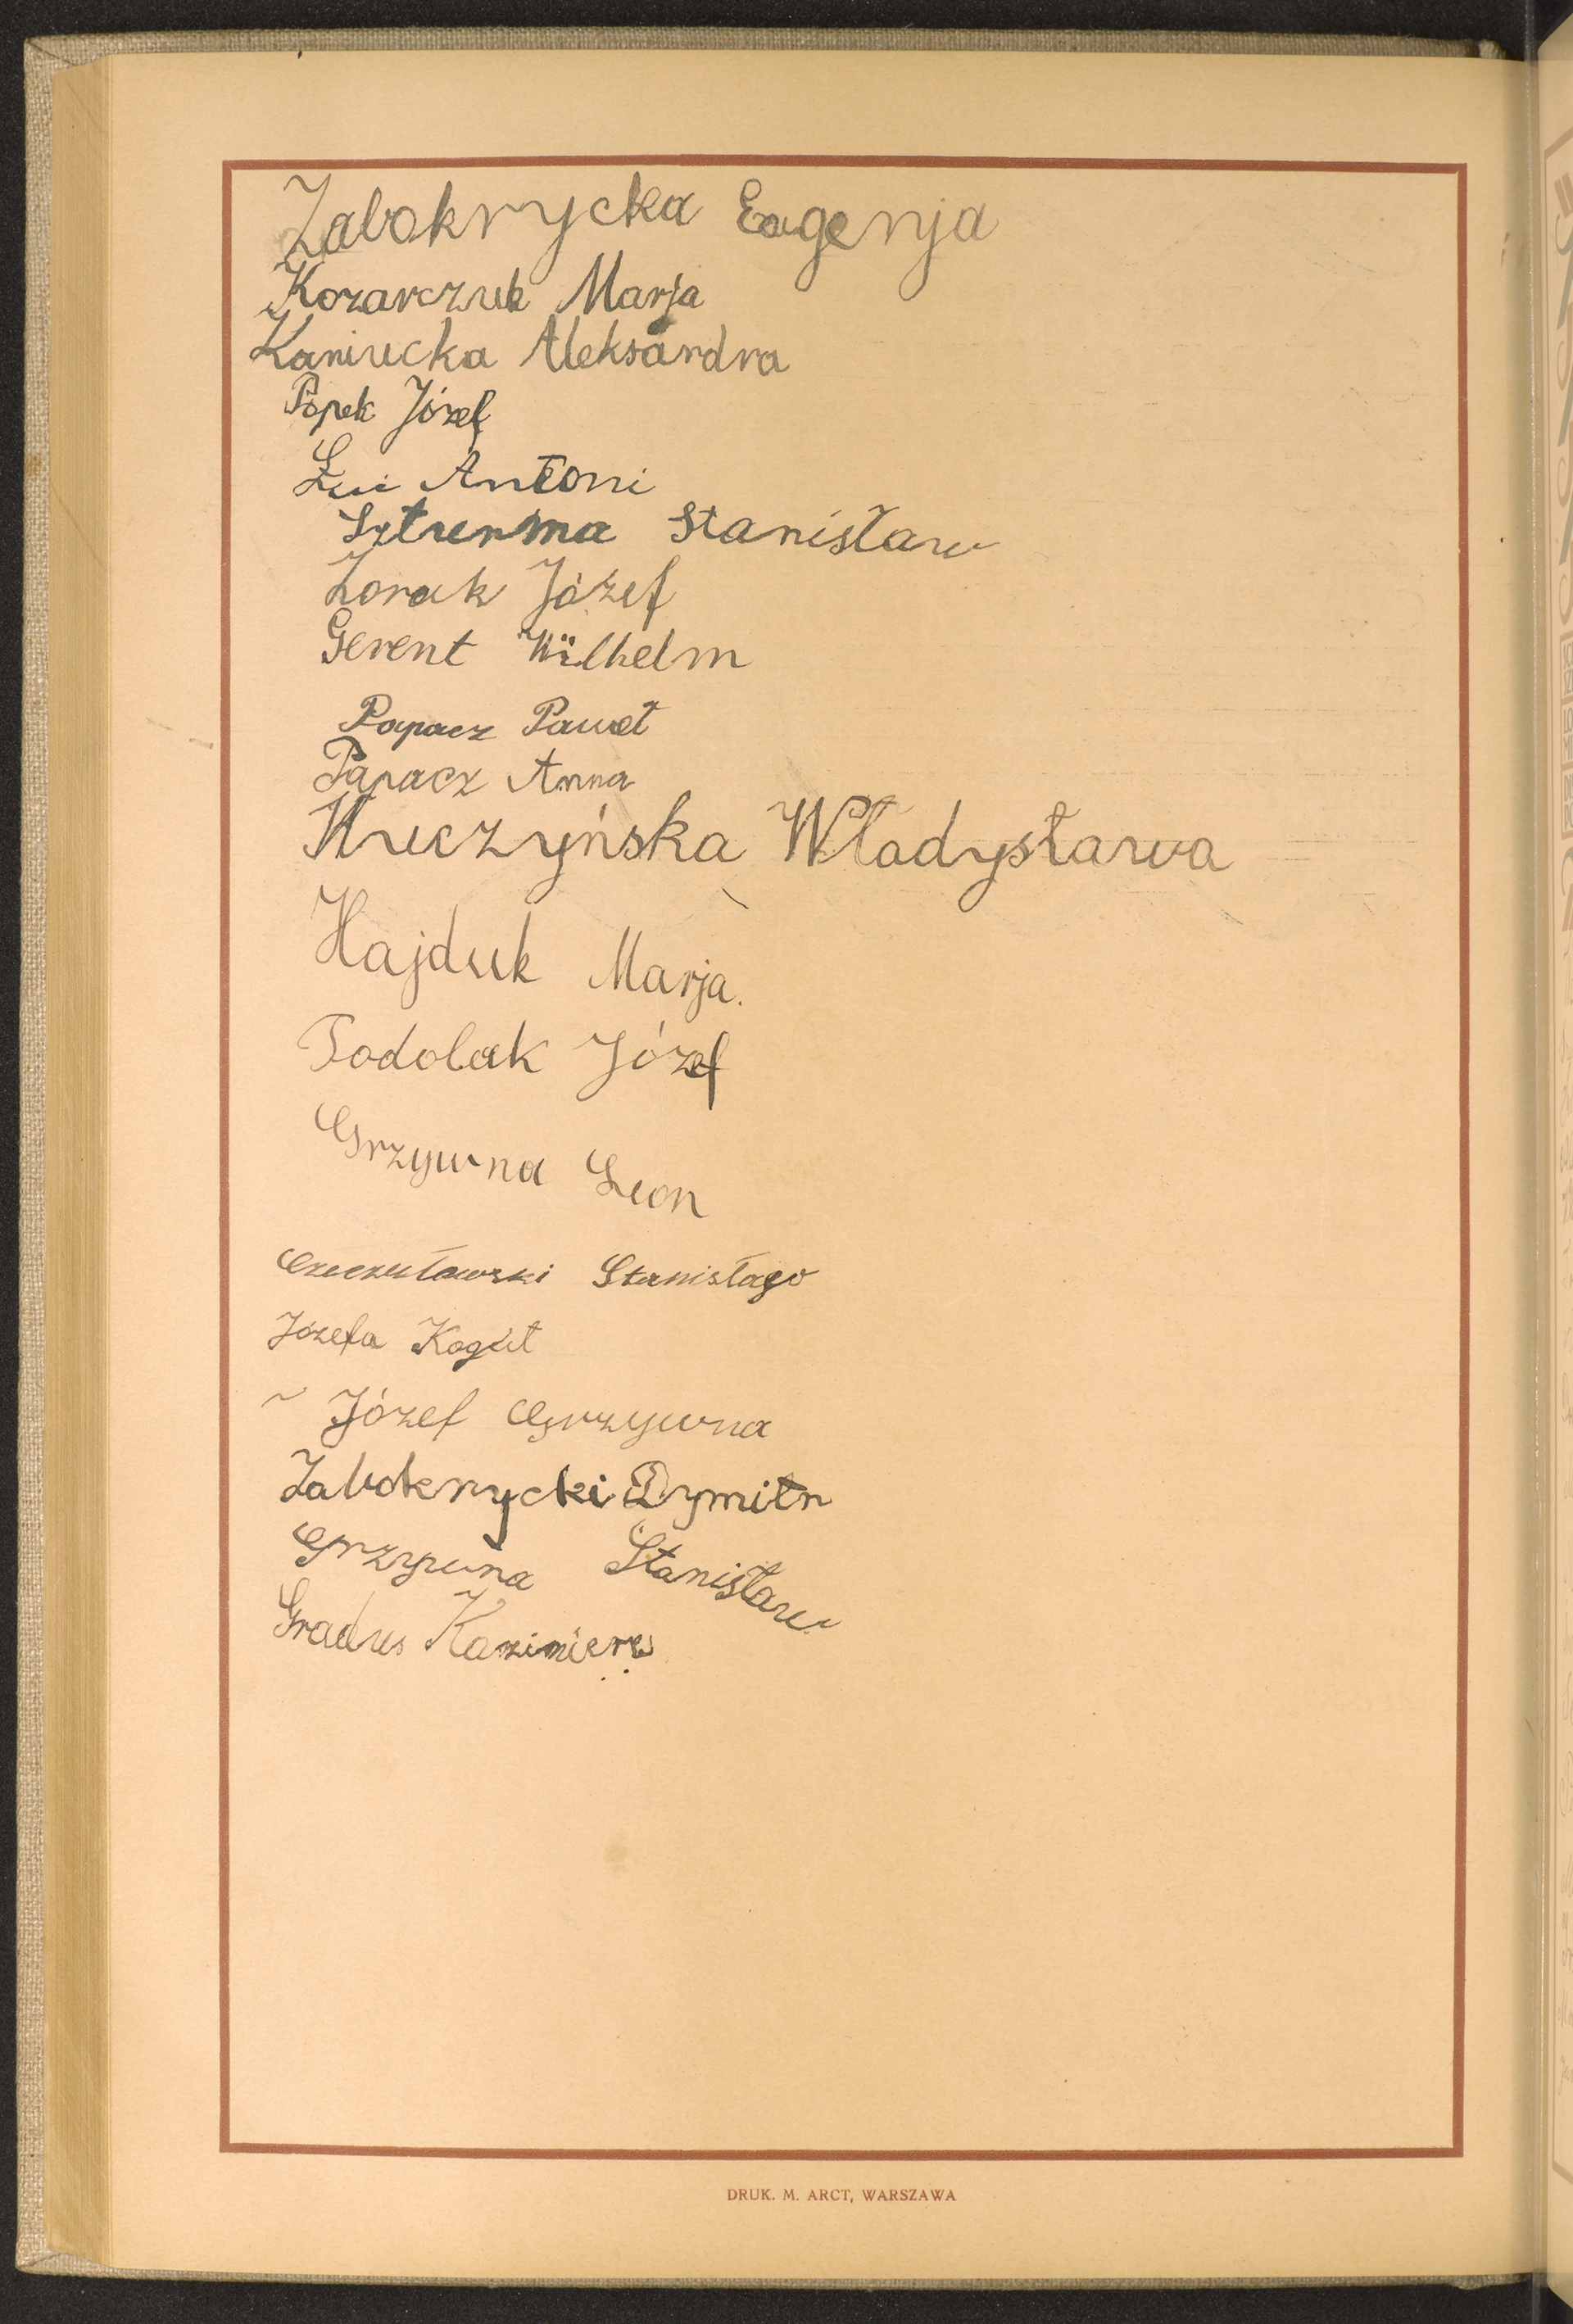 Zabokrycka Eugenja
Kozarczuk Marja
Kaniucka Aleksandra
Popek Józef
Antoni
Szturma Stanisław
Zorak Józef
Gerent Wilhelm
Papacz Paweł
Papacz Anna
Huczyńska Władysława
Hajduk Marja.
Podolak Józef
Grzywna Leon
Czeczułowski Stanisław
Józefa Kogut
Józef Grzywna
Zabokrycki Dymitr
Grzywna Stanisław
Gradus Kazimierz
DRUK. M. ARCT, WARSZAWA